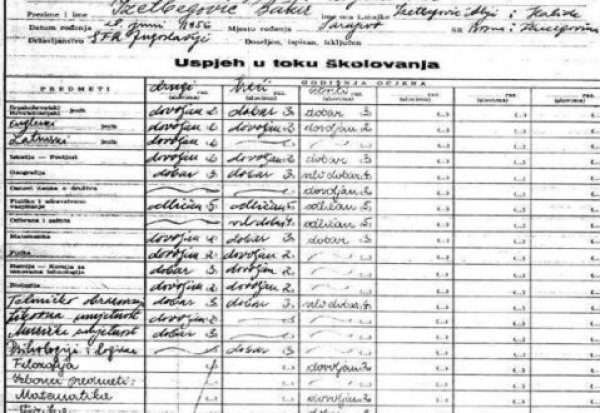 Prezime i ime Izetbegović Bakir ime oca i majke Izetbegović Alija i Halida
Datum rođenja 28. juni 1956 Mjesto rođenja Sarajevo SR Bosna i Hercegovina
Državljanstvo SFR Jugoslavije Doseljen, ispisan, isključen
Uspjeh u toku školovanja
PREDMETI GODIŠNJA OCJENA
drugi raz. (slovima) treći raz. (slovima) četvrti raz. (slovima) raz. (slovima) raz. (slovima) raz. (slovima)
Srpskohrvatski Hrvatskosrpski jezik dovoljan 2 dobar 3 dobar 3
Engleski jezik dovoljan 2 dovoljan 2 dovoljan 2
Latinski jezik dovoljan 2
Istorija — Povijest dovoljan 2 dovoljan 2 dobar 3
Geografija dobar 3 dobar 3 vrlo dobar 4
Osnovi nauke o društvu dovoljan 2
Fizičko i zdravstveno vaspitanje odličan 5 odličan 5 odličan 5
Odbrana i zaštita vrlo dobar 4 odličan 5
Matematika dovoljan 2 dobar 3 dobar 3
Fizika dovoljan 2 dovoljan 2
Hemija — Kemija sa osnovama tehnologije dobar 3 dovoljan 2
Biologija dovoljan 2 dovoljan 2
Tehničko obrazovanje dobar 3 dobar 3 vrlo dobar 4
Likovna umjetnost dovoljan 2
Muzička umjetnost dobar 3
Psihologija i logika dobar 3
Filozofija dovoljan 2
Izborni predmeti:
Matematika dovoljan 2